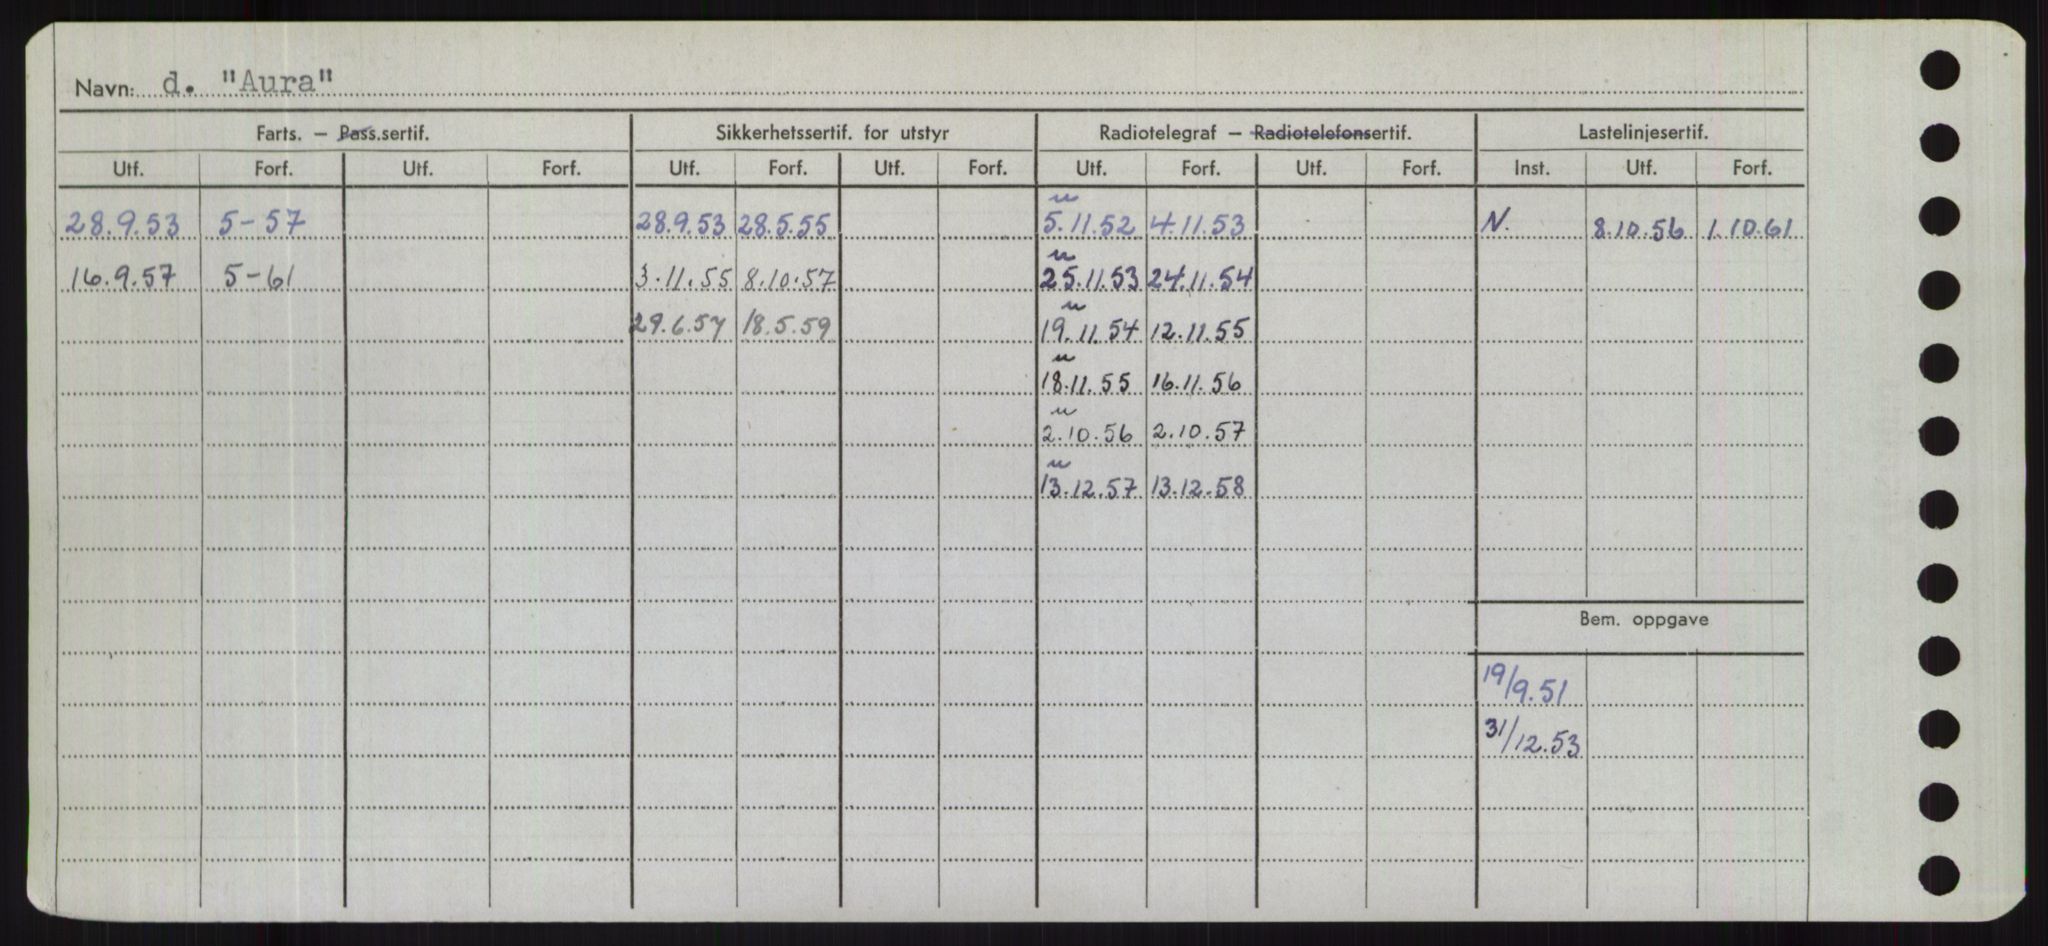 Navn: d. "Aura"
Farts. – Pass.sertif. Sikkerhetssertif. for utstyr Radiotelegraf – Radiotelefonsertif. Lastelinjesertif.
Utf. Forf. Utf. Forf. Utf. Forf. Utf. Forf. Utf. Forf. Utf. Forf. Inst. Utf. Forf.
28.9.53 5-57 28.9.53 28.5.55 5.11.52 4.11.53 N. 8.10.56 1.10.61
16.9.57 5-61 3.11.55 8.10.57 25.11.53 24.11.54
29.6.57 18.5.59 19.11.54 12.11.55
18.11.55 16.11.56
2.10.56 2.10.57
13.12.57 13.12.58
Bem. oppgave
19/9.51
31/12.53